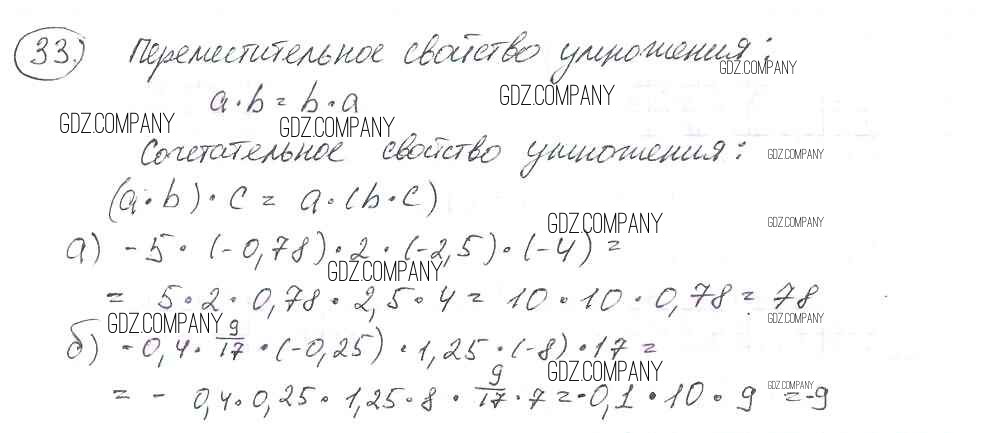 33.) Переместительное свойство умножения:
GDZ.COMPANY
a·b = b·a
GDZ.COMPANY
GDZ.COMPANY
GDZ.COMPANY
Сочетательное свойство умножения:
GDZ.COMPANY
(a·b)·c = a·(b·c)
GDZ.COMPANY
GDZ.COMPANY
а) -5·(-0,78)·2·(-2,5)·(-4) =
GDZ.COMPANY
= 5·2·0,78·2,5·4 = 10·10·0,78 = 78
GDZ.COMPANY
GDZ.COMPANY
б) -0,4·9/17·(-0,25)·1,25·(-8)·17 =
GDZ.COMPANY
GDZ.COMPANY
= - 0,4·0,25·1,25·8·9/17·7 = -0,1·10·9 = -9